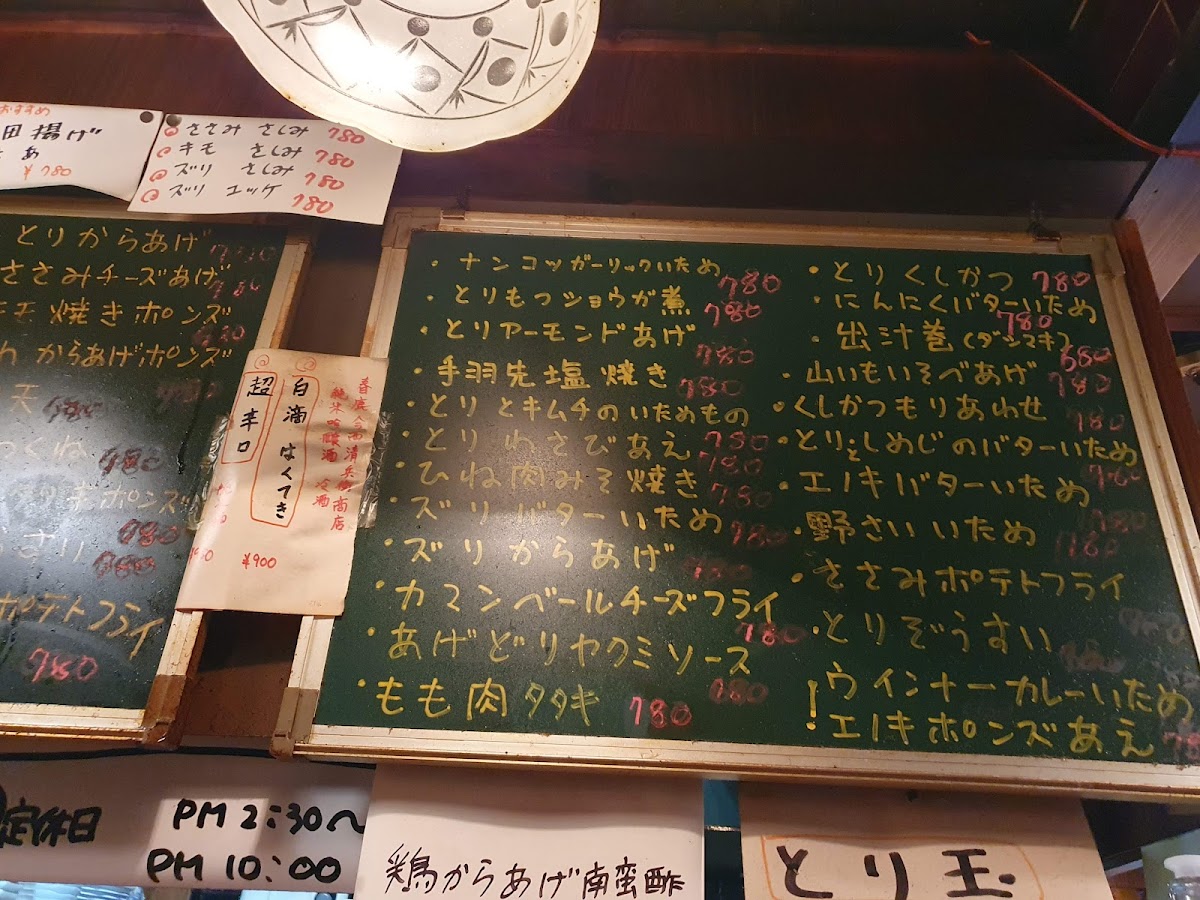 おすすめ
田揚げ
¥780
ささみ さしみ 780
キモ さしみ 780
ズリ さしみ 780
ズリ ユッケ 780
とりからあげ
ささみチーズあげ
焼きポンズ
からあげポンズ
天
くね 780
ポンズ
780
780
ポテトフライ
780
春鹿 今西清兵衛商店
純米吟醸酒 冷酒
白滴 はくてき
超辛口
¥900
・ナンコツガーリックいため 780
・とりもつショウガ煮 780
・とりアーモンドあげ 780
・手羽先塩焼き 780
・とりとキムチのいためもの
・とりわさびあえ 780
780
・ひね肉みそ焼き 780
・ズリバターいため 780
・ズリからあげ 780
・カマンベールチーズフライ 780
・あげどりヤクミソース 980
・もも肉タタキ 780
・とりくしかつ 780
・にんにくバターいため 780
・出汁巻(ダシマキ) 680
・山いもいそべあげ 780
・くしかつもりあわせ 780
・とりとしめじのバターいため 780
・エノキバターいため 780
・野さいいため
・ささみポテトフライ
・とりぞうすい
!ウインナーカレーいため
!エノキポンズあえ
定休日
PM 2:30〜
PM 10:00
鶏からあげ南蛮酢
とり玉